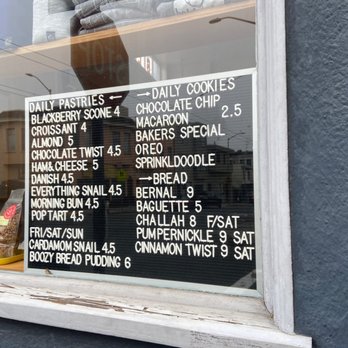 DAILY PASTRIES ←
BLACKBERRY SCONE 4
CROISSANT 4
ALMOND 5
CHOCOLATE TWIST 4.5
HAM&CHEESE 5
DANISH 4.5
EVERYTHING SNAIL 4.5
MORNING BUN 4.5
POP TART 4.5
FRI/SAT/SUN
CARDAMOM SNAIL 4.5
BOOZY BREAD PUDDING 6
→ DAILY COOKIES
CHOCOLATE CHIP
MACAROON 2.5
BAKERS SPECIAL
OREO
SPRINKLDOODLE
→ BREAD
BERNAL 9
BAGUETTE 5
CHALLAH 8 F/SAT
PUMPERNICKLE 9 SAT
CINNAMON TWIST 9 SAT